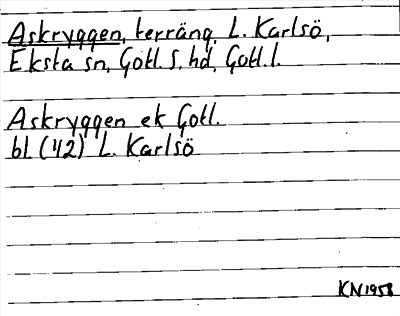 Askryggen, terräng, L. Karlsö,
Eksta sn, Gotl. S. hd, Gotl. l.
Askryggen ek Gotl.
bl (42) L. Karlsö
KN 1958